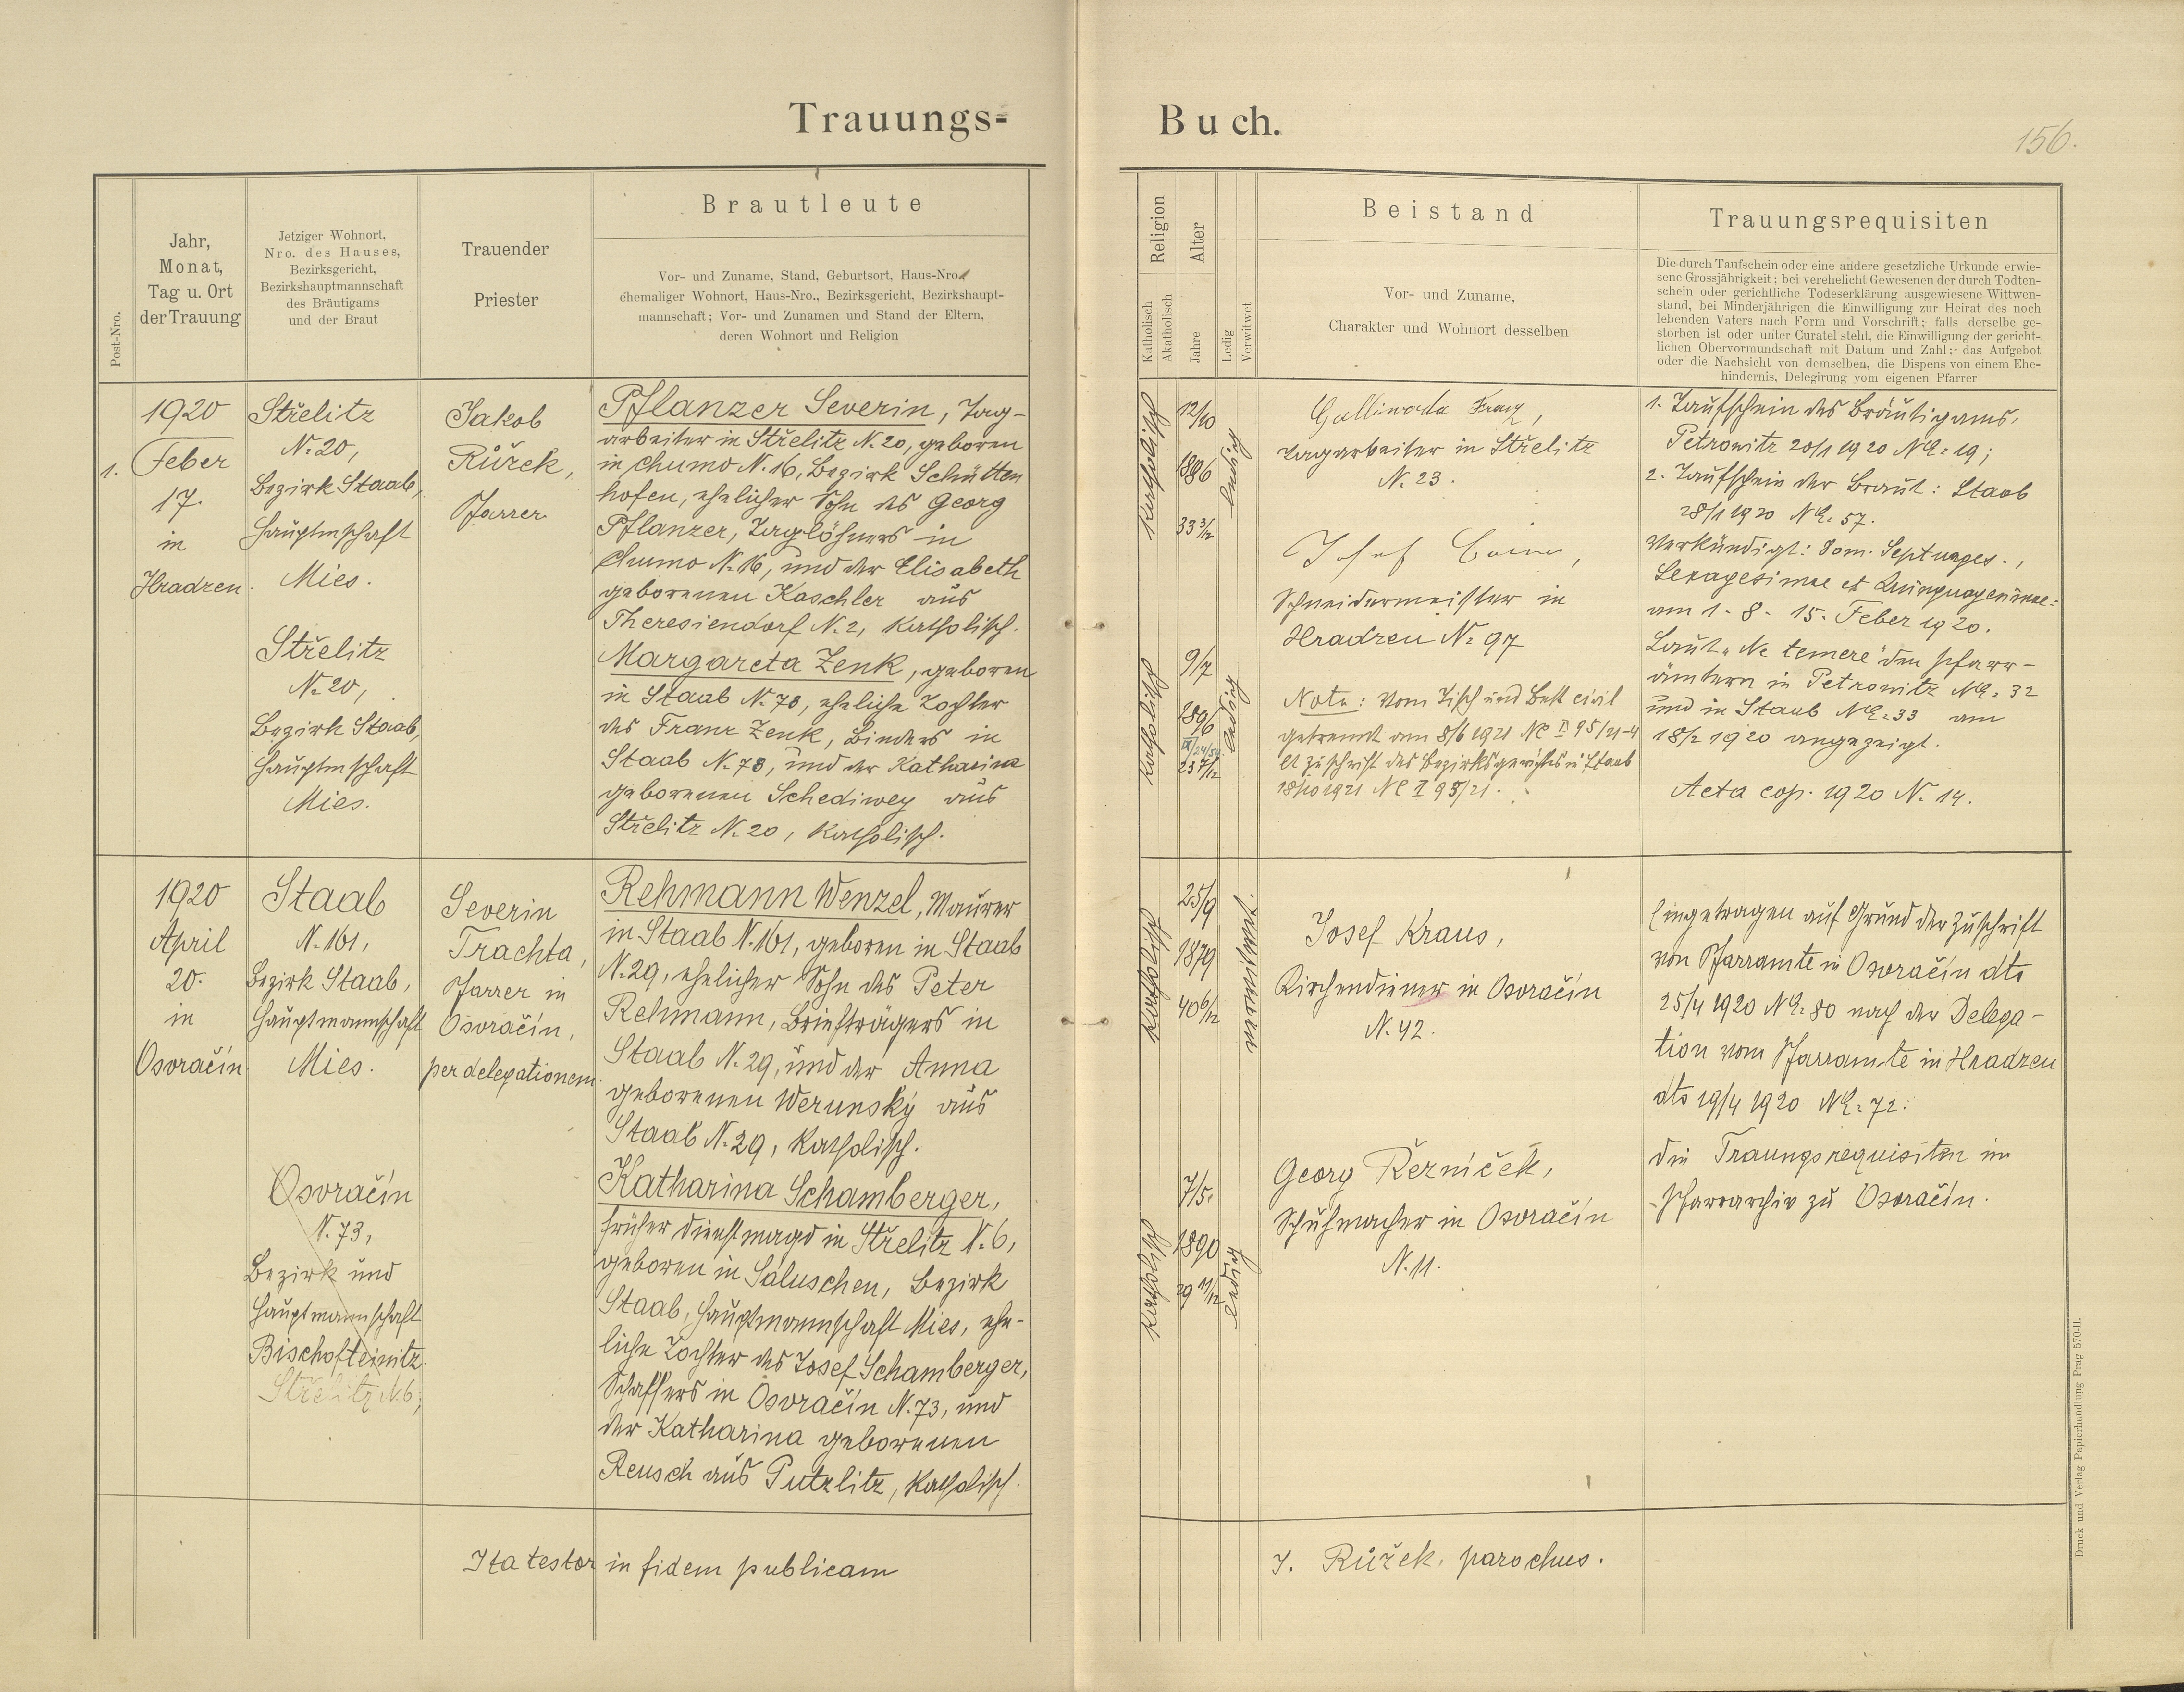 Trauungs-
Buch.
156.
Post-Nro.
Jahr,
Monat,
Tag u. Ort
der Trauung
Jetziger Wohnort,
Nro. des Hauses,
Bezirksgericht,
Bezirkshauptmannschaft
des Bräutigams
und der Braut
Trauender
Priester
Brautleute
Vor- und Zuname, Stand, Geburtsort, Haus-Nro.,
ehemaliger Wohnort, Haus-Nro., Bezirksgericht, Bezirkshaupt-
mannschaft; Vor- und Zunamen und Stand der Eltern,
deren Wohnort und Religion
Religion
Katholisch
Akatholisch
Alter
Jahre
Ledig
Verwitwet
Beistand
Vor- und Zuname,
Charakter und Wohnort desselben
Trauungsrequisiten
Die durch Taufschein oder eine andere gesetzliche Urkunde erwie-
sene Grossjährigkeit; bei verehelicht Gewesenen der durch Todten-
schein oder gerichtliche Todeserklärung ausgewiesene Wittwen-
stand, bei Minderjährigen die Einwilligung zur Heirat des noch
lebenden Vaters nach Form und Vorschrift; falls derselbe ge-
storben ist oder unter Curatel steht, die Einwilligung der gericht-
lichen Obervormundschaft mit Datum und Zahl; das Aufgebot
oder die Nachsicht von demselben, die Dispens von einem Ehe-
hindernis, Delegirung vom eigenen Pfarrer
1.
1920
Feber
17.
in
Hradzen.
Střelitz
N. 20,
Bezirk Staab,
Hauptmschaft
Mies.
Střelitz
N. 20,
Bezirk Staab,
Hauptmschaft
Mies.
Jakob
Růžek,
Pfarrer
Pflanzer Severin, Tag-
arbeiter in Střelitz N. 20, geboren
in Chumo N. 16, Bezirk Schütten
hofen, ehelicher Sohn des Georg
Pflanzer, Taglöhners in
Chumo N. 16, und der Elisabeth
geborenen Kaschler aus
Theresiendorf N. 2, katholisch.
Margareta Zenk, geboren
in Staab N. 78, eheliche Tochter
des Franz Zenk, Binders in
Staab N. 78, und der Katharina
geborenen Schediwey aus
Střelitz N. 20, katholisch.
katholisch
12/10
1886
33 3/12
ledig
katholisch
9/7
1896
23 7/12
ledig
Galliwoda Franz,
Tagarbeiter in Střelitz
N. 23.
Josef
Schneidermeister in
Hradzen N. 97
Nota: Vom Tisch und Bett civil
getrennt am 8/6 1921 Nc II 95/21-4
lt Zuschrift des Bezirksgerichts in Staab
18/10 1921 Nc II 95/21.
1. Taufschein des Bräutigams,
Petrowitz 20/1 1920 NE. 19;
2. Taufschein der Braut: Staab
28/1 1920 NE. 57.
Verkündigt: Dom. Septuages.,
Sexagesimae et Quinquagesimae:
am 1. 8. 15. Feber 1920.
Laut „Ne temere" den Pfarr-
ämtern in Petrowitz NE. 32
und in Staab NE. 33 am
18/2 1920 angezeigt.
Acta cop. 1920 N. 14.
1920
April
20.
in
Osvračín.
Staab
N. 161,
Bezirk Staab,
Hauptmannschaft
Mies.
Osvračín
N. 73,
Bezirk und
Hauptmannschaft
Bischofteinitz.
Střelitz N. 6,
Severin
Trachta,
Pfarrer in
Osvračín,
per delegationem.
Rehmann Wenzel, Maurer
in Staab N. 161, geboren in Staab
N. 29, ehelicher Sohn des Peter
Rehmann, Briefträgers in
Staab N. 29, und der Anna
geborenen Werunský aus
Staab N. 29, katholisch.
Katharina Schamberger,
früher Dienstmagd in Střelitz N. 6,
geboren in Saluschen, Bezirk
Staab, Hauptmannschaft Mies, ehe-
liche Tochter des Josef Schamberger,
Schaffers in Osvračín N. 73, und
der Katharina geborenen
Reusch aus Putzlitz, katholisch.
katholisch
25/9
1879
40 6/12
verwitwet.
katholisch
7/5.
1890
29 11/12
ledig
Josef Kraus,
Kirchendiener in Osvračín
N. 42.
Georg Řezníček,
Schuhmacher in Osvračín
N. 11.
Eingetragen auf Grund der Zuschrift
von Pfarramte in Osvračín dto
25/4 1920 NE. 80 nach der Delega-
tion vom Pfarramte in Hradzen
dto 19/4 1920 NE. 72.
die Trauungsrequisiten im
Pfarrarchiv zu Osvračín.
Ita testor in fidem publicam
J. Růžek, parochus.
Druck und Verlag Papierhandlung Prag 570-II.